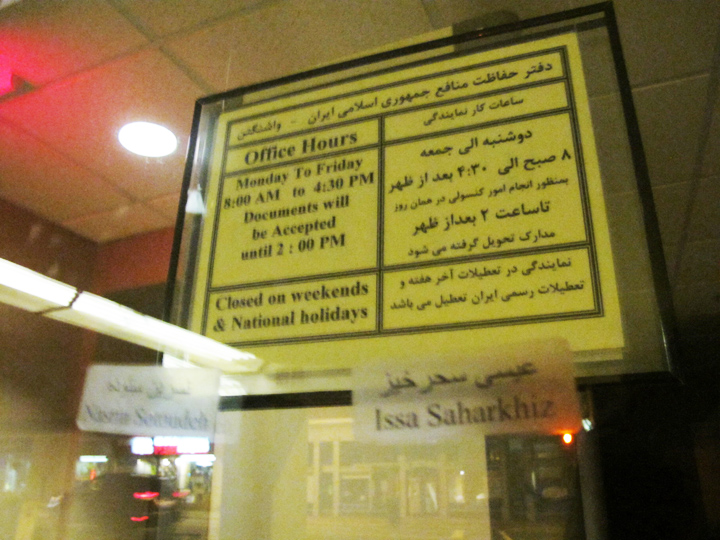 دفتر حفاظت منافع جمهوری اسلامی ایران - واشنگتن
Office Hours
ساعات کار نمایندگی
Monday To Friday
8:00 AM to 4:30 PM
Documents will
be Accepted
until 2 : 00 PM
دوشنبه الی جمعه
۸ صبح الی ۴:۳۰ بعد از ظهر
بمنظور انجام امور کنسولی در همان روز
تاساعت ۲ بعداز ظهر
مدارک تحویل گرفته می شود
Closed on weekends
& National holidays
نمایندگی در تعطیلات آخر هفته و
تعطیلات رسمی ایران تعطیل می باشد
نسرین ستوده
Nasrin Sotoudeh
عیسی سحرخیز
Issa Saharkhiz